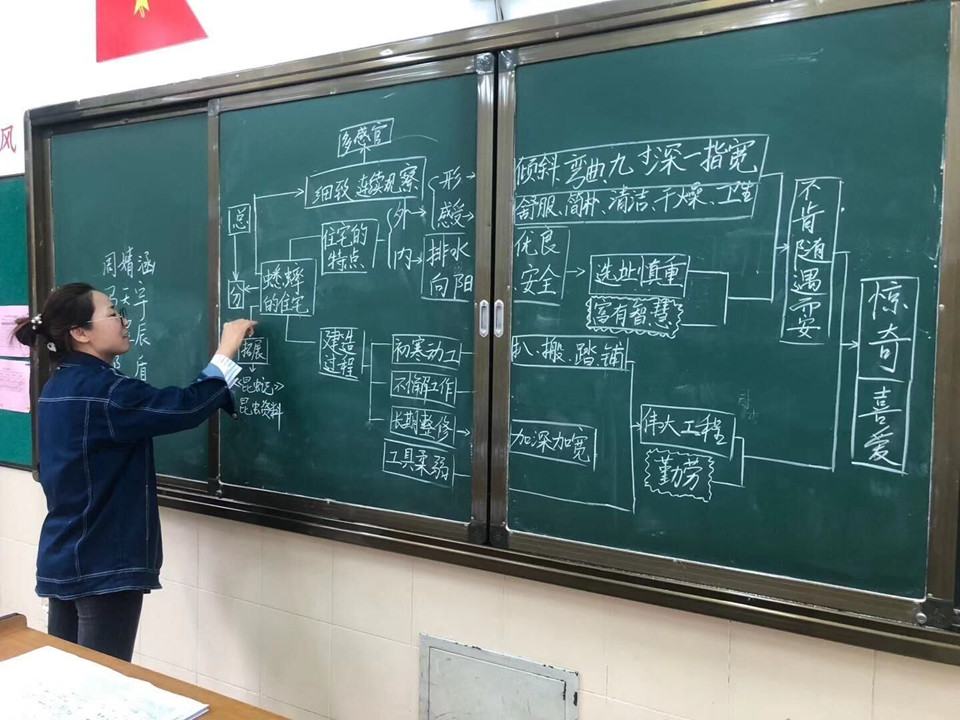 风
周婧涵
宇
辰
盾
多感官
细致 连续观察
总
分
蟋蟀
的住宅
住宅的
特点
外
内
形
感受
排水
向阳
倾斜、弯曲九寸深一指宽
舒服、简朴、清洁、干燥、卫生
优良
安全
选址慎重
富有智慧
不肯随遇而安
惊奇
喜爱
拓展
《昆虫记》
昆虫资料
建造
过程
初寒动工
不懈工作
长期整修
工具柔弱
扒、搬、踏、铺
加深加宽
伟大工程
勤劳